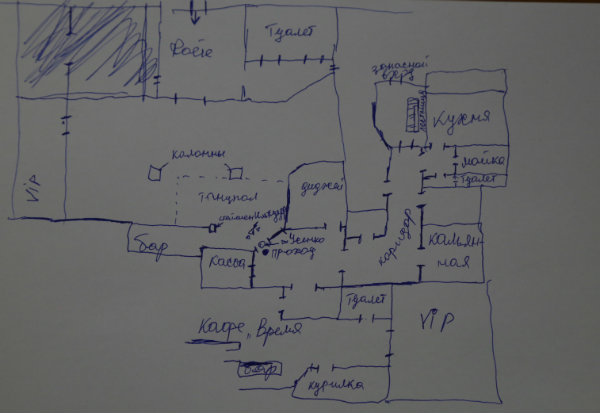 Туалет
Фойе
запасной
вход
лестница
Кухня
мойка
туалет
колонны
VIP
танцпол
диджей
Усенко
проход
бар
касса
коридор
Кальян-
ная
Туалет
VIP
Кафе „Время
бар
курилка